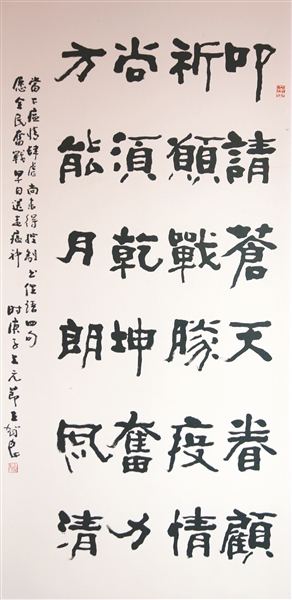 叩請蒼天眷顧
祈願戰勝疫情
尚須乾坤奮力
方能月朗風清
當下疫情肆虐尚未得控制书語四句
愿全民奮戰早日送走瘟神
时庚子上元節王